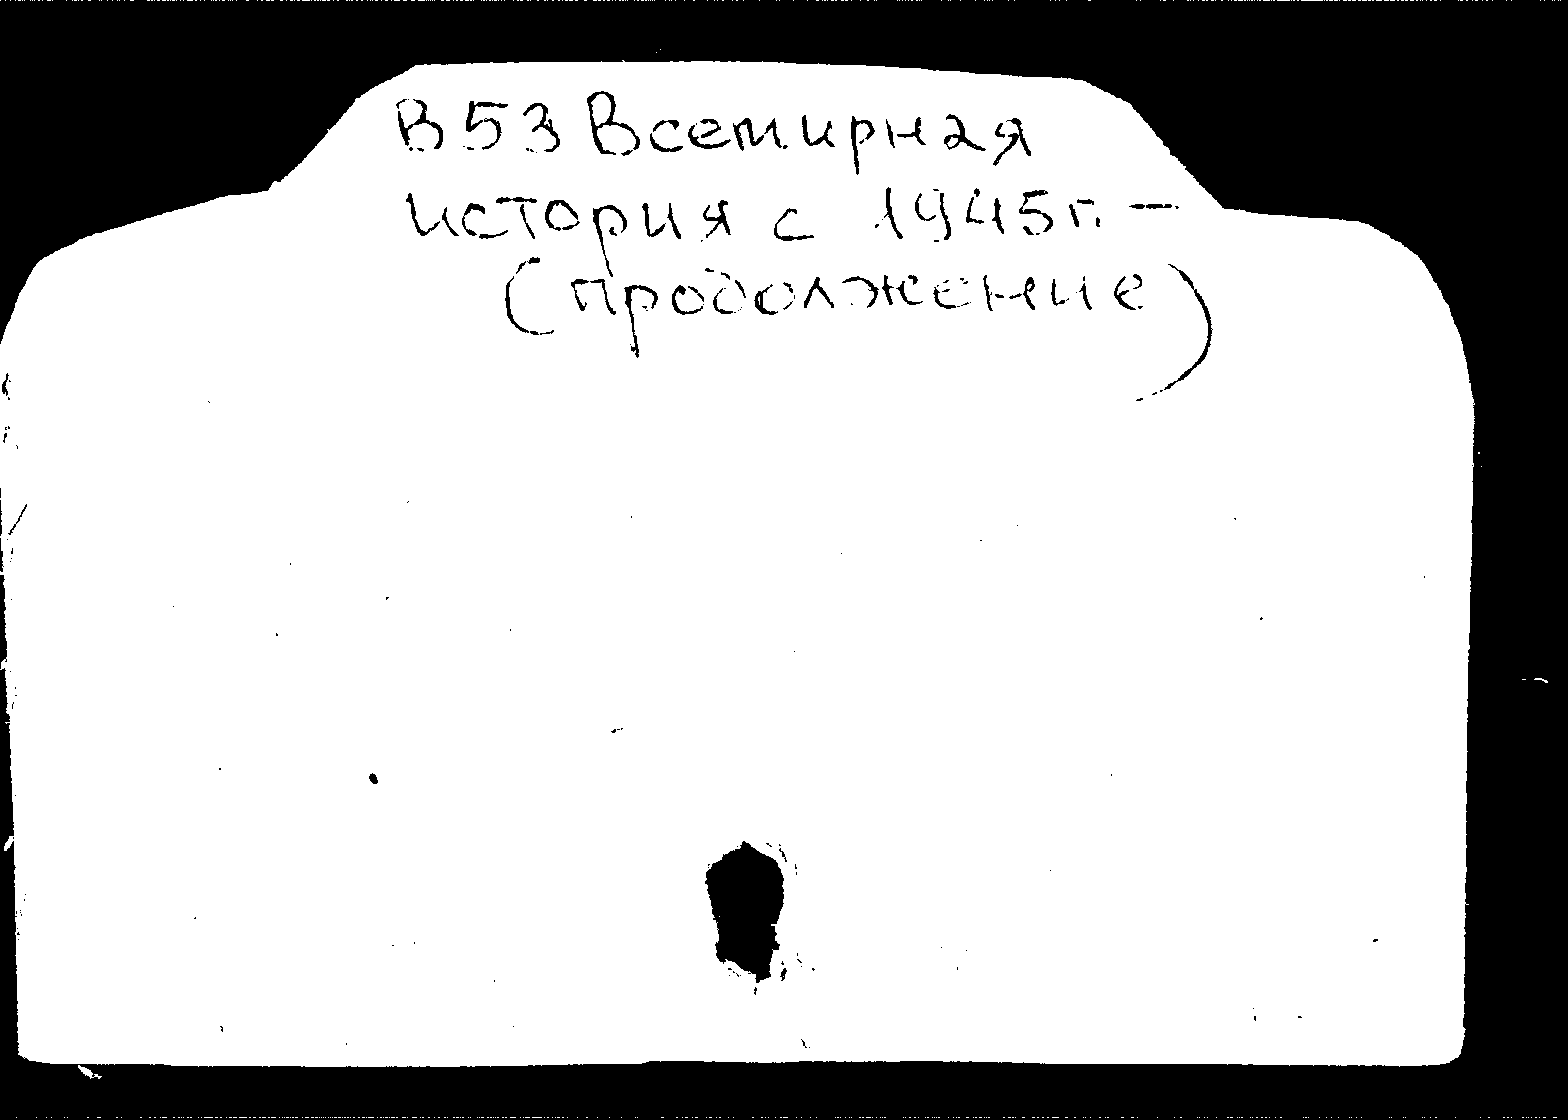 В53 Всемирная
история с 1945г. —
(продолжение)